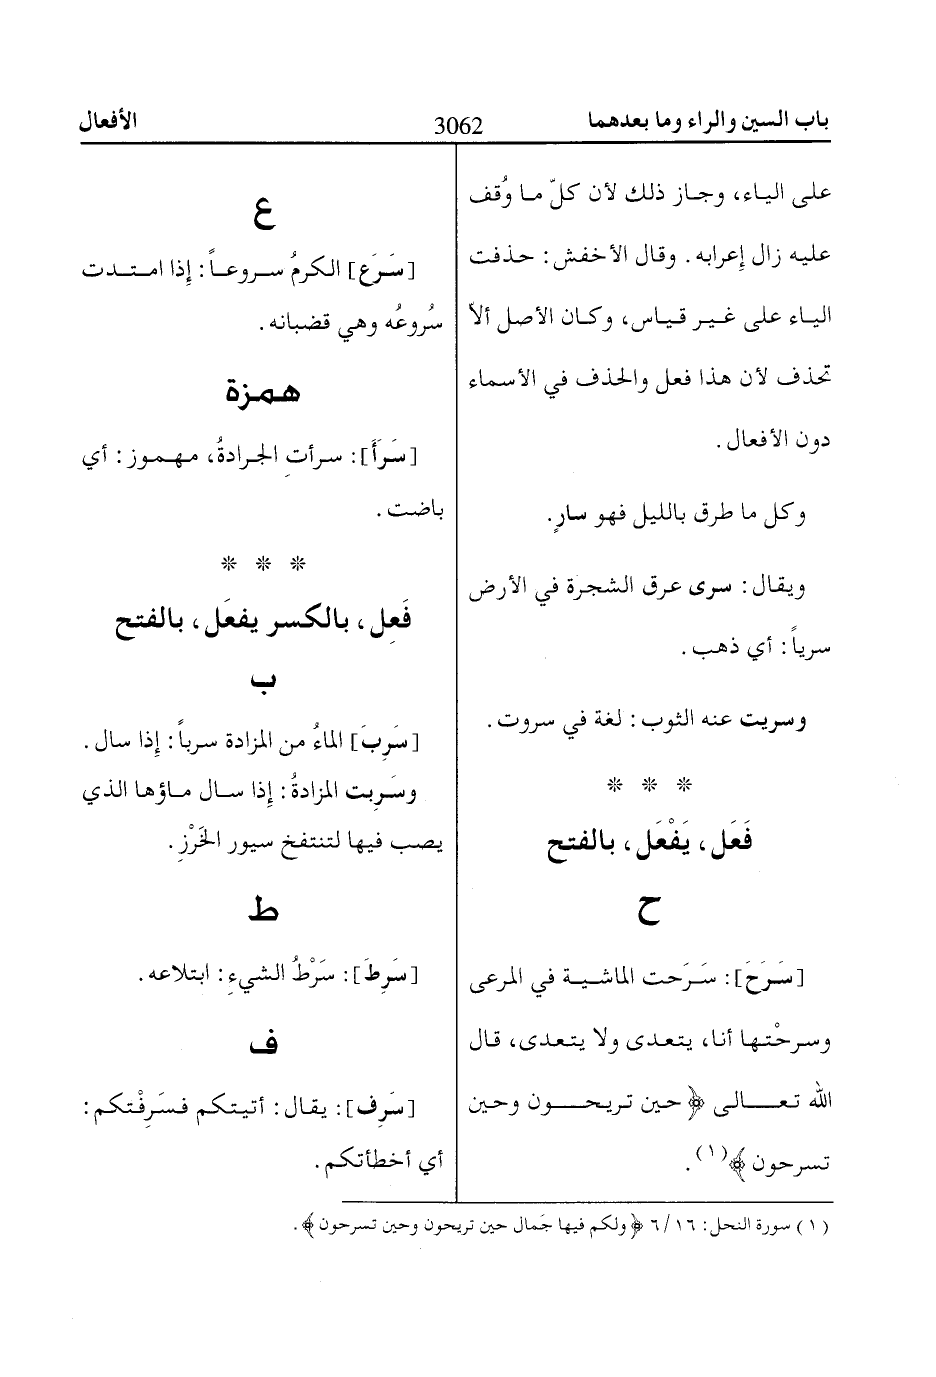 باب السين والراء وما بعدهما 3062 الأفعال
على الياء، وجاز ذلك لأن كلّ ما وُقف
عليه زال إعرابه. وقال الأخفش: حذفت
الياء على غير قياس، وكان الأصل ألاّ
تحذف لأن هذا فعل والحذف في الأسماء
دون الأفعال.
وكل ما طرق بالليل فهو سارٍ.
ويقال: سرى عرق الشجرة في الأرض
سرياً: أي ذهب.
وسريت عنه الثوب: لغة في سروت.
* * *
فَعَل، يَفْعَل، بالفتح
ح
[سَرَحَ]: سَرَحت الماشية في المرعى
وسرحْتها أنا، يتعدى ولا يتعدى، قال
الله تعالى ﴿حين تريحون وحين
تسرحون﴾(١).
ع
[سَرَع] الكرمُ سروعاً: إذا امتدت
سُروعُه وهي قضبانه.
همزة
[سَرَأ]: سرأتِ الجرادةُ، مهموز: أي
باضت.
* * *
فَعِل، بالكسر يفعَل، بالفتح
ب
[سَرِبَ] الماءُ من المزادة سرباً: إذا سال.
وسَرِبت المزادةُ: إذا سال ماؤها الذي
يصب فيها لتنتفخ سيور الخَرْزِ.
ط
[سَرِطَ]: سَرْطُ الشيءِ: ابتلاعه.
ف
[سَرِف]: يقال: أتيتكم فسَرِفْتكم:
أي أخطأتكم.
(١) سورة النحل: ٦/١٦ ﴿ولكم فيها جَمال حين تريحون وحين تسرحون﴾.